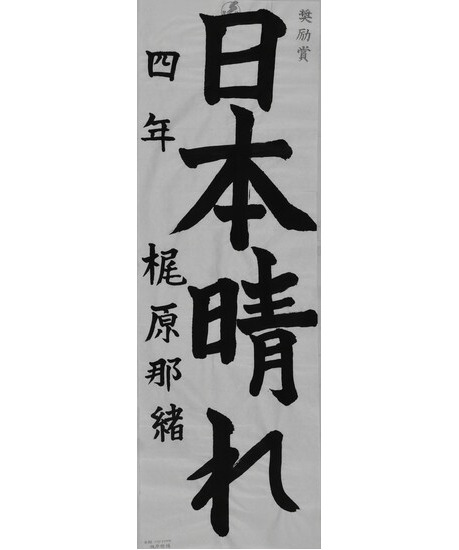 奨励賞
日本晴れ
四年 梶原那緒